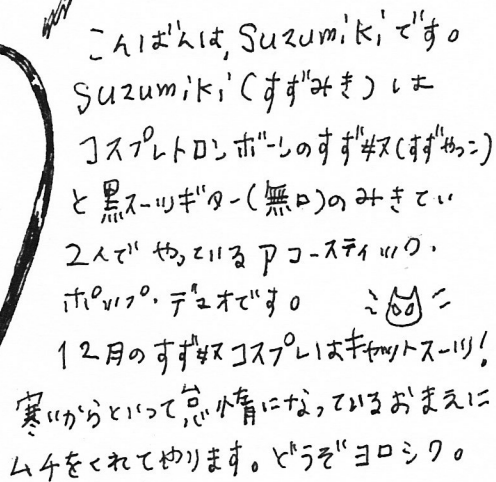 こんばんは、Suzumikiです。
Suzumiki(すずみき)は
コスプレトロンボーンのすず奴(すずやっこ)
と黒スーツギター(無口)のみきてぃ
2人でやっているアコースティック・
ポップ・デュオです。
12月のすず奴コスプレはキャットスーツ!
寒いからといって怠惰になっているおまえに
ムチをくれてやります。どうぞヨロシク。